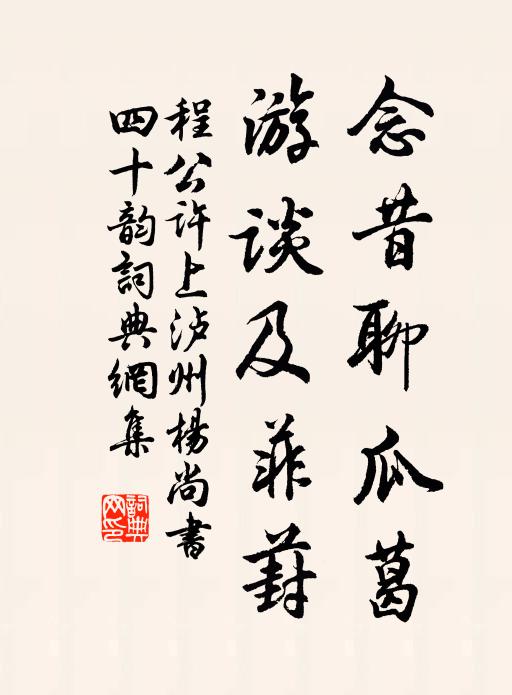 念昔聊瓜葛
游谈及菲葑
程公许上泸州杨尚书
四十韵詞典網集
詞典網印